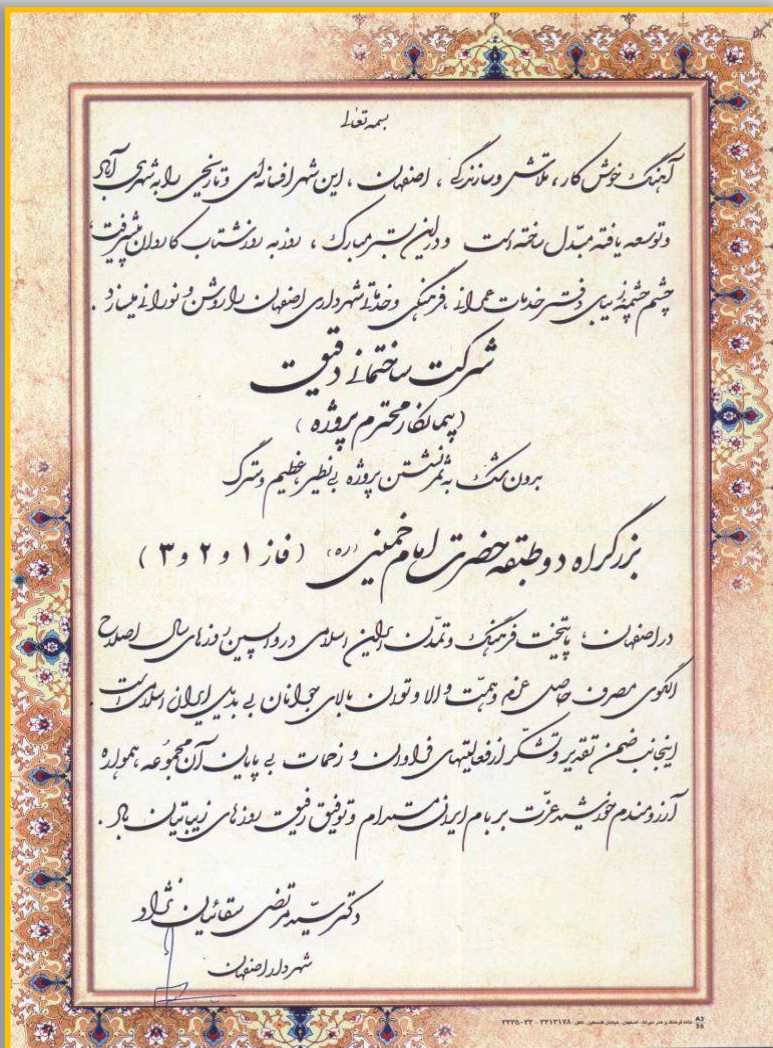 بسمه تعالی
آهنگ خوش کار، تلاش و سازندگی، اصفهان، این شهر افسانه‌ای و تاریخی را به شهری آباد
و توسعه یافته مبدّل ساخته است و در این بستر مبارک، روز به روز شتاب کاروان پیشرفت،
چشم چشمه زیبای دفتر خدمات عمرانی، فرهنگی و خدماتی شهرداری اصفهان را روشن و نورانی میسازد.
شرکت ساختمانی دقیق
(پیمانکار محترم پروژه)
برون شک به ثمر نشستن پروژه بی نظیر، عظیم و سترگ
بزرگراه دو طبقه حضرت امام خمینی (ره) (فاز ۱ و ۲ و ۳)
در اصفهان، پایتخت فرهنگ و تمدّن ایران اسلامی در واپسین روزهای سال اصلاح
الگوی مصرف حاصل عزم و همّت والا و توان بالای جوانان بی بدیل ایران اسلامی است.
اینجانب ضمن تقدیر و تشکّر از فعالیتهای فراوان و زحمات بی پایان آن مجموعه، همواره
آرزومندم خورشید عزّت بر بام ایران مستدام و توفیق رفیق روزهای زیبایتان باد.
دکتر سیّد مرتضی سقائیان نژاد
شهردار اصفهان
خانه فرهنگ و هنر میراث، اصفهان، خیابان فلسطین، تلفن: ۲۲۱۳۱۷۸ - ۲۲۲۵۰۲۲
A3
35